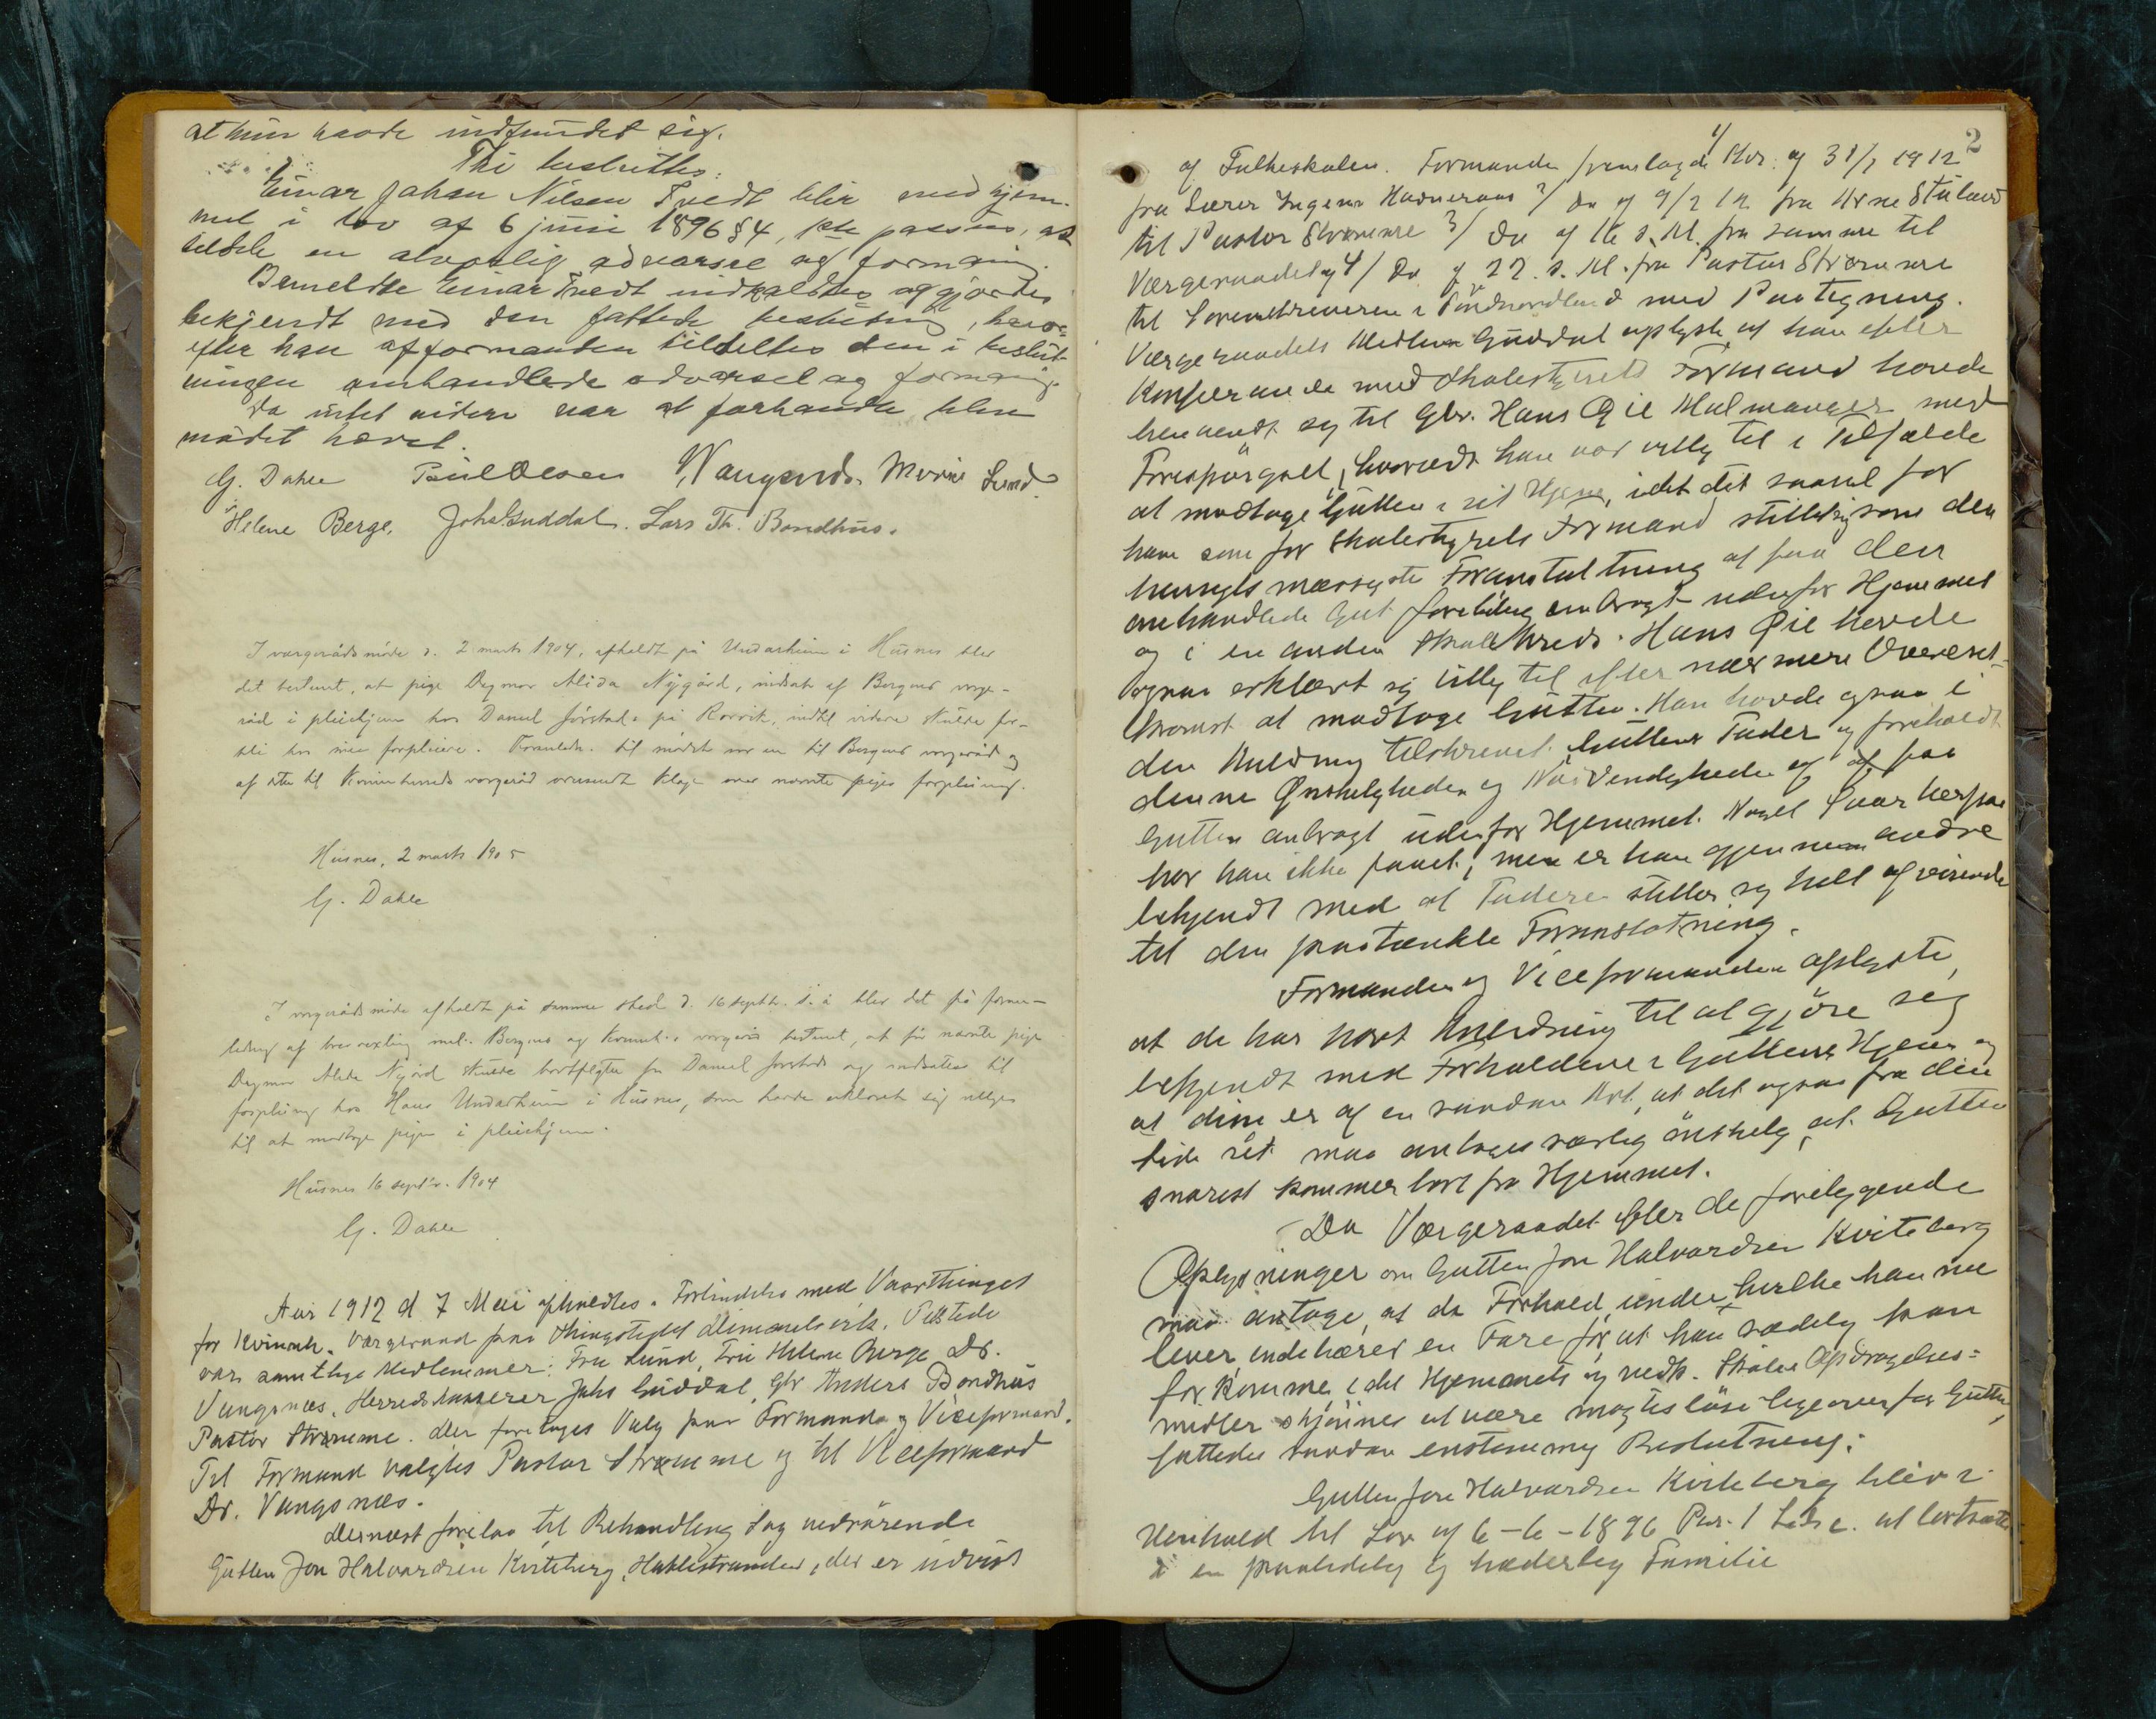 at hun havde indfundet sig.
Thi besluttes:
Einar Johan Nilsen Tvedt blir med hjem-
mel i lov af 6 juni 1896 § 4, 1ste passus, at
tildele en alvorlig advarsel og formaning
Bemeldte Einar Tvedt indkaldtes og gjordes
bekjendt med den fattede beslutning, hvor-
efter han af formanden tildeltes den i beslut-
ningen omhandlede advarsel og formaning.
Da intet videre var at forhandle blev
mødet hævet.
G. Dahle Paul Olsen Vangsnes. Marie Lund.
Helene Berge. Johs Guddal. Lars Th. Bondhus.
I værgerådsmøde d. 2 marts 1904, afholdt på Undarheim i Husnes blev
det bestemt, at pige Dagmar Alida Nygård, indsat af Bergens værge-
råd i pleiehjem hos Daniel på Rørvik, indtil videre skulde for-
bli hos sine forpleiere. Foranledn. til mødet var en til Bergens værgeråd og
af dette til Kvinnherreds værgeråd oversendt klage over nævnte piges forpleining.
Husnes, 2 marts 1905
G. Dahle
I værgerådsmøde afholdt på samme sted d. 16 septbr. s. å. blev det på foran-
ledng af brevvexling mel. Bergens og Kvinnh.s værgeråd bestemt, at før nævnte pige
Dagmar Alida Nygård skulde bortflyttes fra Daniel og indsættes til
forpleining hos Hans Undarheim i Husnes, som havde erklæret sig villig
til at modtage pigen i pleiehjem.
Husnes 16 septbr. 1904
G. Dahle
Aar 1912 d 7 Mai afholdtes i Forbindelse med Vaarthinget
for Kvinnh. Værgeraad paa Thingstedet Dimmelsvik. Tilstede
var samtlige Medlemmer: Fru Lund, Fru Helene Berge Dr.
Vangsnes, Herredskasserer Johs Guddal, Gbr Anders Bondhus
Pastor Strømme. Der foretoges Valg paa Formand og Viceformand.
Til Formand valgtes Pastor Strømme og til Viceformand
Dr. Vangsnes.
Dernæst forelaa til Behandling Sag vedrørende
Gutten Jon Halvardsen Kviteberg, Hatlestranden, der er udvist
2
af Folkeskolen. Formanden fremlagde 1/ Skr. af 31/1 1912
fra Lærer Ingemr 2/ Do af 9/2 12 fra Arne Stuland
til Pastor Strømme 3/ Do af 16 s. M. fra samme til
Værgeraadet og 4/ Do af 22. s. M. fra Pastor Strømme
til Sorenskriveren i Søndhordland med Paategning.
Værgeraadets Medlem Guddal oplyste at han efter
Konferance med Skolestyrets Formand havde
henvendt sig til Gbr. Hans Øie Malmanger med
Forespørgsel, hvorvidt han var villig til i Tilfælde
at modtage Gutten i sit Hjem, idet det saavel for
ham som for Skolestyrets Formand stillet sig som den
hensigtsmæssigste Foranstaltning at faa den
omhandlede Gut foreløbig anbragt udenfor Hjemmet
og i en anden Skolekreds. Hans Øie havde
ogsaa erklært sig villig til efter nærmere Overens-
komst at modtage Gutten. Han havde ogsaa i
den Anledning tilskrevet Guttens Fader og foreholdt
denne Ønskeligheden og Nødvendigheden af at faa
Gutten anbragt udenfor Hjemmet. Noget Svar herpaa
har han ikke faaet, men er han gjennem andre
bekjendt med at Faderen stiller sig helt afvisende
til den paatænkte Foranstaltning.
Formanden og Viceformanden oplyste,
at de har havt Anledning til at gjøre sig
bekjendt med Forholdene i Guttens Hjem og
at disse er af en saadan Art, at det ogsaa fra den
Side set maa ansees særlig ønskelig, at Gutten
snarest kommer bort fra Hjemmet.
Da Værgeraadet efter de foreliggende
Oplysninger om Gutten Jon Halvardsen Kviteberg
maa antage, at de Forhold, under hvilke han nu
lever, indebærer en Fare for, at han sædelig kan
forkomme, idet Hjemmets og vedk. Skoles Opdragelses=
midler skjønnes at være magtesløse ligeoverfor Gutten,
fattedes saadan enstemmig Beslutning:
Gutten Jon Halvardsen Kviteberg bliver i
Henhold til Lov af 6-6-1896 Par. 1 Litr c. at bortsætte
i en paalidelig og hæderlig Familie